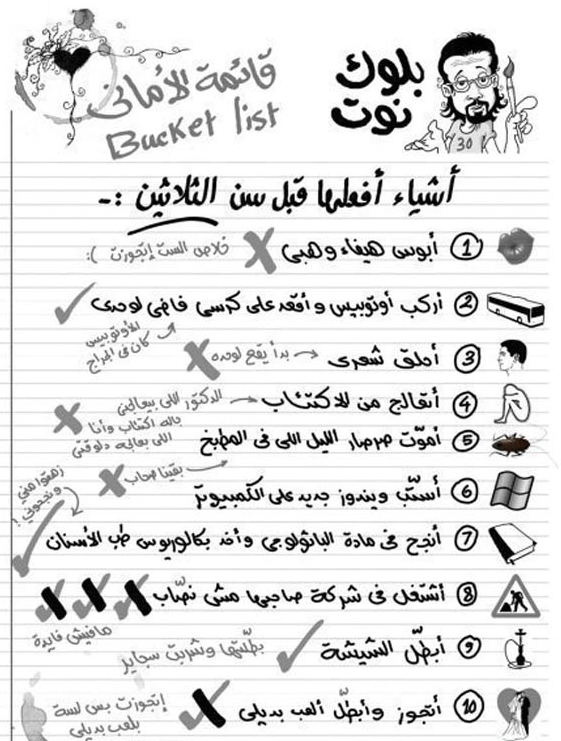 بلوك
نوت
قائمة الأماني
Bucket list
30
أشياء أفعلها قبل سن الثلاثين :-
① أبوس هيفاء وهبي ✗ خلاص الست إتجوزت ):
② أركب أوتوبيس وأقعد على كرسي فاضي لوحدى ✓
الأوتوبيس
كان في الجراج
③ أحلق شعرى ← بدأ يقع لوحده ✗
④ أتعالج من الاكتئاب ← الدكتور اللي بيعالجني
جاله اكتئاب وأنا
اللي بعالجه دلوقتي ✗
⑤ أموّت صرصار الليل اللى فى المطبخ
← بقينا صحاب ✗
⑥ أستّب ويندوز جديد على الكمبيوتر
زهقوا مني
ونجحوني !
⑦ أنجح في مادة الباثولوجي وأخد بكالوريوس طب الأسنان ✓
⑧ أشتغل فى شركة صاحبها مش نصّاب
مافيش فايدة
⑨ أبطّل الشيشة ✓ بطّلتها وشربت سجاير
⑩ أتجوز وأبطّل ألعب بديلي
إتجوزت بس لسة
بلعب بديلي